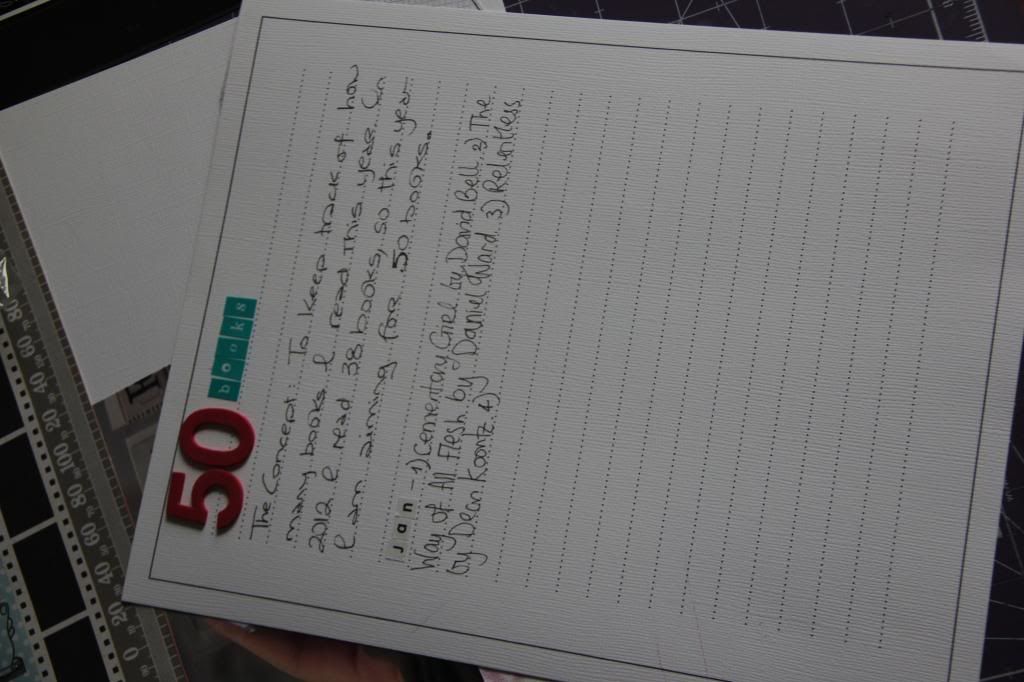 50 books
The Concept: To keep track of how
many books I read this year. In
2012 I read 38 books, so this year
I am aiming for 50 books.
Jan - 1) Cementary Girl by David Bell 2) The
Way of All Flesh by Daniel Ward 3) Relentless
by Dean Koontz 4)
0 20 40 60 80 100 120 40 60 80